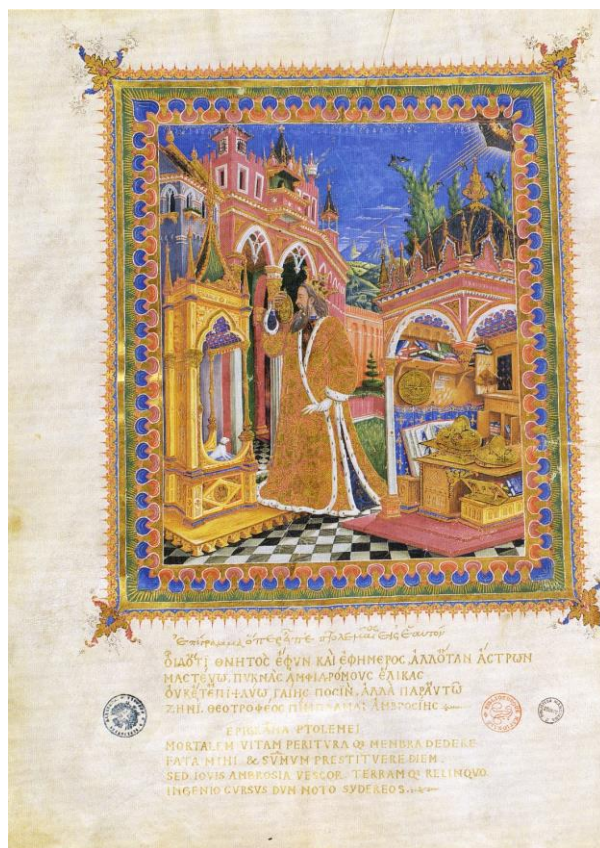 ΟΙΔΟΤΙ ΘΝΗΤΟΣ ΕΦΥΝ ΚΑΙ ΕΦΗΜΕΡΟΣ. ΑΛΛΟΤΑΝ ΑΣΤΡΩΝ
ΜΑΣΤΕΥΩ. ΠΥΚΝΑΣ ΑΜΦΙΔΡΟΜΟΥΣ ΕΛΙΚΑΣ
ΟΥΚΕΤΕΠΙΨΑΥΩ. ΓΑΙΗΣ ΠΟΣΙΝ. ΑΛΛΑ ΠΑΡΑΥΤΩ
ΖΗΝΙ. ΘΕΟΤΡΟΦΕΟΣ ΠΙΜΠΛΑΜΑΙ ΑΜΒΡΟΣΙΗΣ
EPIGRAMA PTOLEMEI
MORTALEM VITAM PERITVRA Q; MENBRA DEDERE
FATA MIHI. & SVMVM PRESTITVERE DIEM.
SED IOVIS AMBROSIA VESCOR. TERRAM Q; RELINQVO.
INGENIO CVRSVS DVN NOTO SYDEREOS.